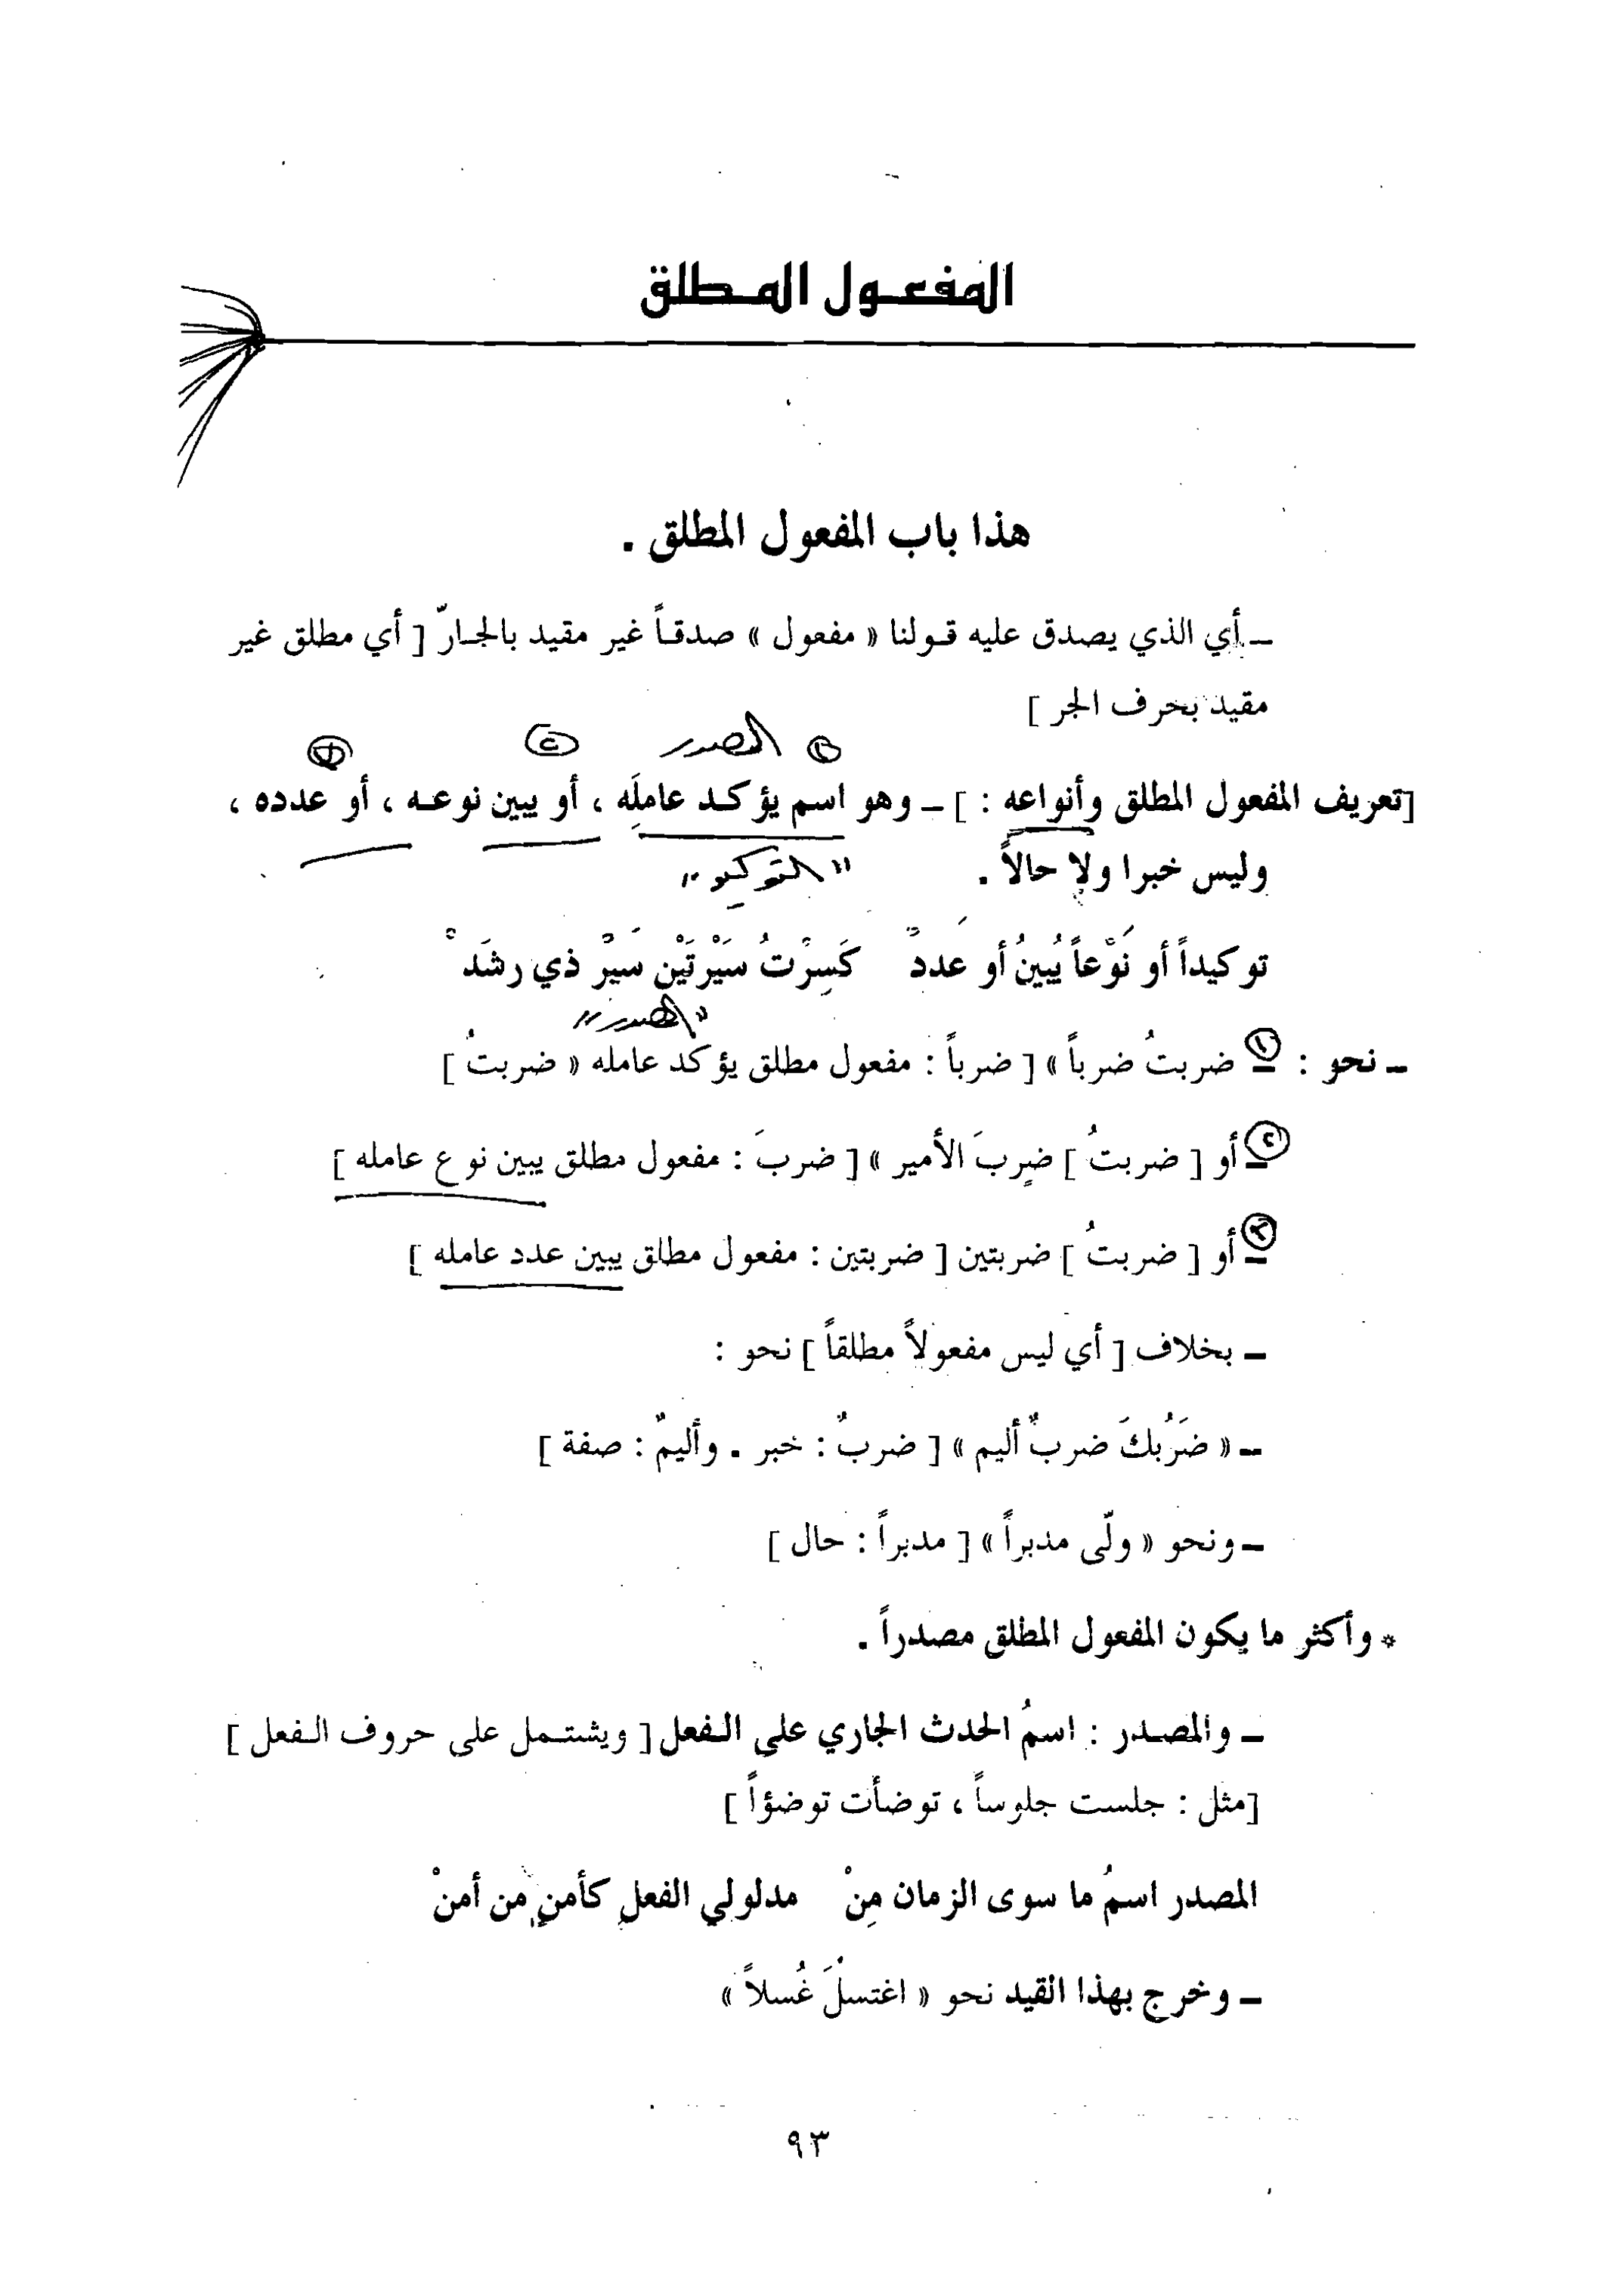 المفعول المطلق
هذا باب المفعول المطلق .
ــ أي الذي يصدق عليه قولنا « مفعول » صدقاً غير مقيد بالجارّ [ أي مطلق غير
مقيد بحرف الجر ]
① المصدر ② ③
[تعريف المفعول المطلق وأنواعه : ] ــ وهو اسم يؤكد عاملَه ، أو يبين نوعه ، أو عدده ،
وليس خبرا ولا حالاً .
"التوكيد"
توكيداً أو نَوْعاً يُبينُ أو عَددْ كَسِرْتُ سَيْرتَيْن سَيْرَ ذي رشَدْ
"المصدر"
ــ نحو : ① ضربتُ ضرباً » [ ضرباً : مفعول مطلق يؤكد عامله « ضربتُ ]
② أو [ ضربتُ ] ضربَ الأمير » [ ضربَ : مفعول مطلق يبين نوع عامله ]
③ أو [ ضربتُ ] ضربتين [ ضربتين : مفعول مطلق يبين عدد عامله ]
ــ بخلاف [ أي ليس مفعولاً مطلقاً ] نحو :
ــ « ضَرُبكَ ضربٌ أليم » [ ضربٌ : خبر . وأليمٌ : صفة ]
ــ ونحو « ولّى مدبراً » [ مدبراً : حال ]
* وأكثر ما يكون المفعول المطلق مصدراً .
ــ والمصدر : اسمُ الحدث الجاري على الفعل [ ويشتمل على حروف الفعل ]
[مثل : جلست جلوساً ، توضأت توضؤاً ]
المصدر اسمُ ما سوى الزمان مِنْ مدلولي الفعلِ كأمنٍ من أمنْ
ــ وخرج بهذا القيد نحو « اغتسلَ غُسلاً »
٩٣